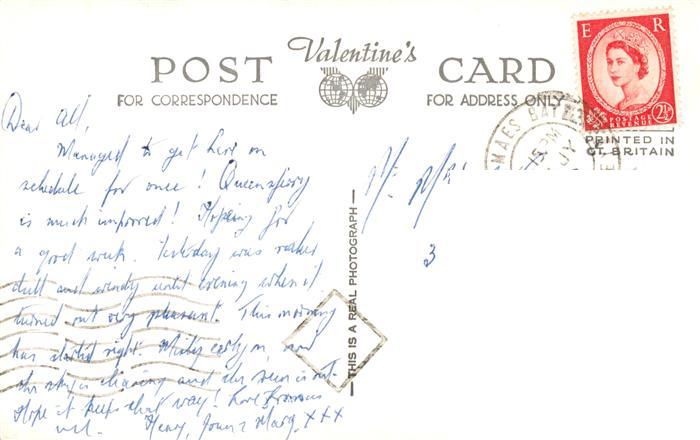 Valentine's
POST CARD
FOR CORRESPONDENCE
FOR ADDRESS ONLY
E R
POSTAGE REVENUE 2½D
PRINTED IN
GT. BRITAIN
MAES
PM
JY
THIS IS A REAL PHOTOGRAPH
Dear All,
Managed to get here on
schedule for once! Queensferry
is much improved! Hoping for
a good week. Yesterday was rather
dull and windy until evening when it
turned out very pleasant. This morning
has started right. Misty early on, and
the sky is clearing and the sun is out.
Hope it keeps that way! Love from us
all. Henry, Joan & Marg. XXX
3